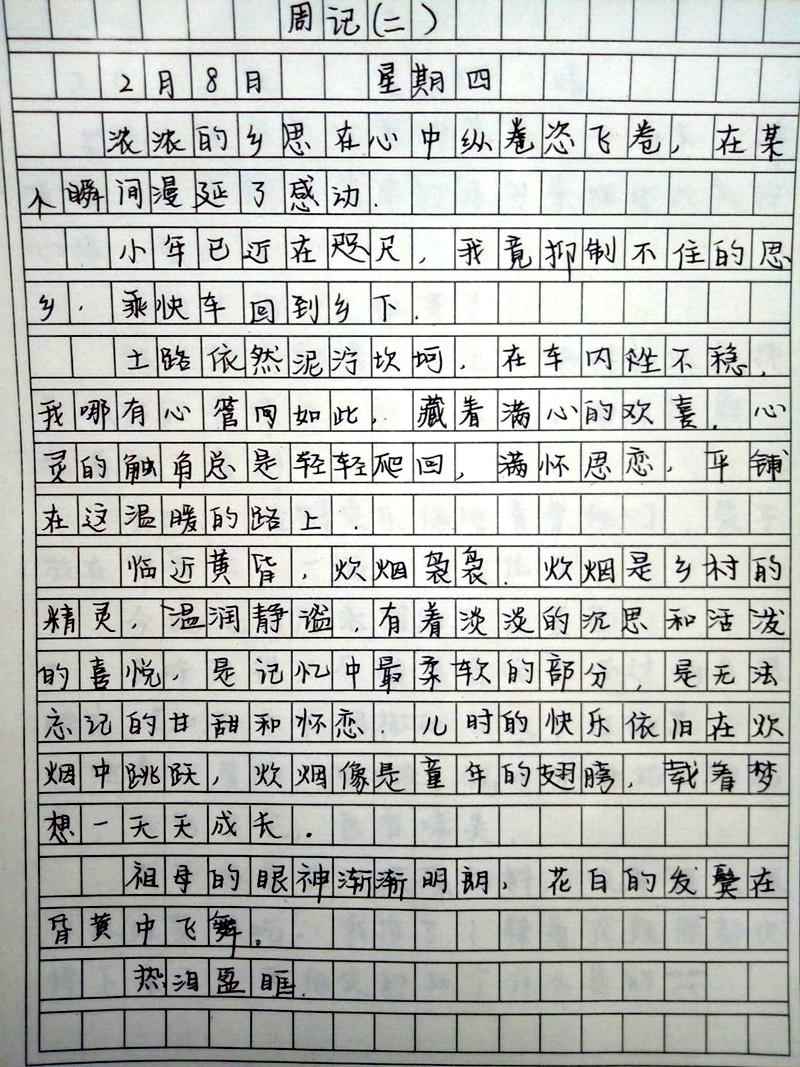 周记(二)
2月8日 星期四
浓浓的乡思在心中纵卷恣飞卷，在某
个瞬间漫延了感动.
小年已近在咫尺，我竟抑制不住的思
乡.乘快车回到乡下.
土路依然泥泞坎坷，在车内性不稳，
我哪有心管间如此，藏着满心的欢喜.心
灵的触角总是轻轻爬回，满怀思恋，平铺
在这温暖的路上.
临近黄昏，炊烟袅袅.炊烟是乡村的
精灵，温润静谧，有着淡淡的沉思和活泼
的喜悦，是记忆中最柔软的部分，是无法
忘记的甘甜和怀恋.儿时的快乐依旧在炊
烟中跳跃，炊烟像是童年的翅膀，载着梦
想一天天成长.
祖母的眼神渐渐明朗，花白的发鬓在
昏黄中飞舞。
热泪盈眶.